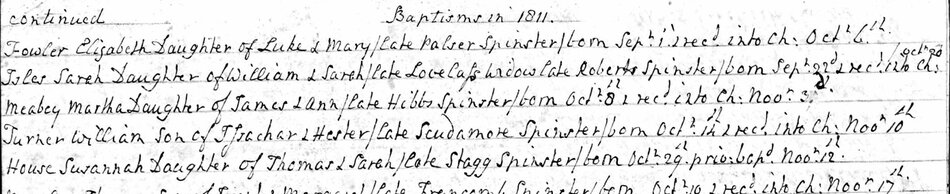 continued Baptisms in 1811.
Fowler Elizabeth Daughter of Luke & Mary/late Palser Spinster/born Sepr. 1 & recd. into Ch: Octr. 6th.
Isles Sarah Daughter of William & Sarah/late Lovelass Widow late Roberts Spinster/born Sepr. 22d & recd. into Ch: Octr. 20
Meabey Martha Daughter of James & Ann/late Hibbs Spinster/born Octr. 8 & recd. into Ch: Novr. 3d.
Turner William Son of Issachar & Hester/late Scudamore Spinster/born Octr. 14 & recd. into Ch: Novr. 10th
House Susannah Daughter of Thomas & Sarah/late Stagg Spinster/born Octr. 29. priv: bapd. Novr. 12th.
Son of late Francomb Spinster/born Octr. 10 & recd. into Ch: Novr. 17th